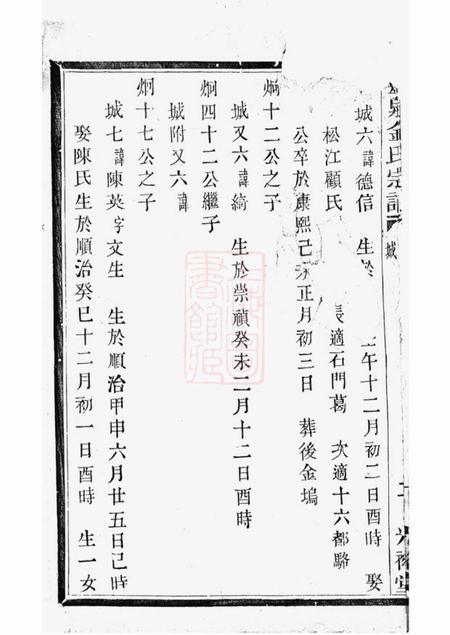 泉金氏宗譜 城
城六諱德信 生於 午十二月初二日酉時 娶
松江顧氏 長適石門葛 次適十六都駱
公卒於康熙己未正月初三日 葬後金塢
炯十二公之子
城又六諱綺 生於崇禎癸未二月十二日酉時
炯四十二公繼子
城附又六諱
炯十七公之子
城七諱陳英字文生 生於順治甲申六月廿五日己時
娶陳氏生於順治癸巳十二月初一日酉時 生一女